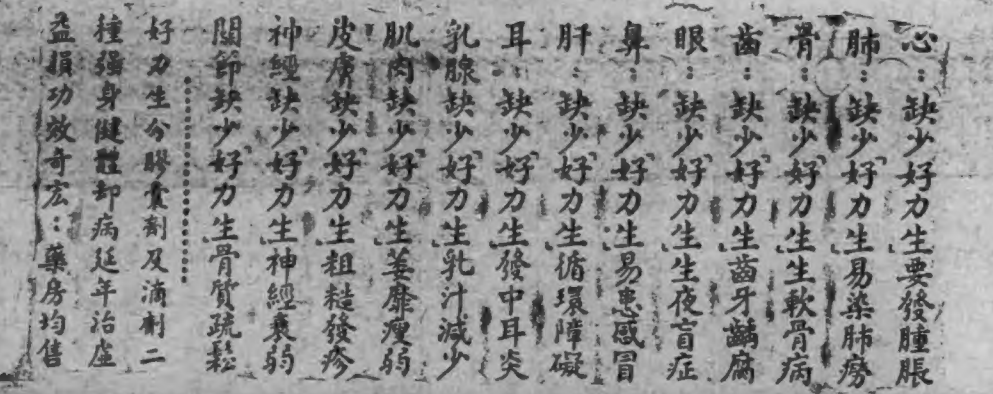 心：缺少「好力生」要發腫脹
肺：缺少「好力生」易染肺癆
骨：缺少「好力生」生軟骨病
齒：缺少「好力生」齒牙齲腐
眼：缺少「好力生」生夜盲症
鼻：缺少「好力生」易患感冒
耳：缺少「好力生」發中耳炎
肝：缺少「好力生」循環障礙
乳腺缺少「好力生」乳汁減少
肌肉缺少「好力生」萎靡瘦弱
皮膚缺少「好力生」粗糙發疹
神經缺少「好力生」神經衰弱
關節缺少「好力生」骨質疏鬆
好力生分膠囊劑及滴劑二
種強身健體卻病延年治虛
益損功效奇宏：藥房均售